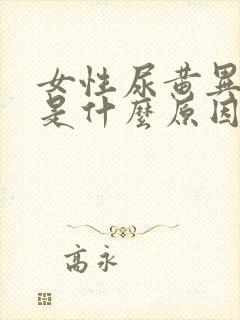 女性尿黄異
是什麽原因
高永